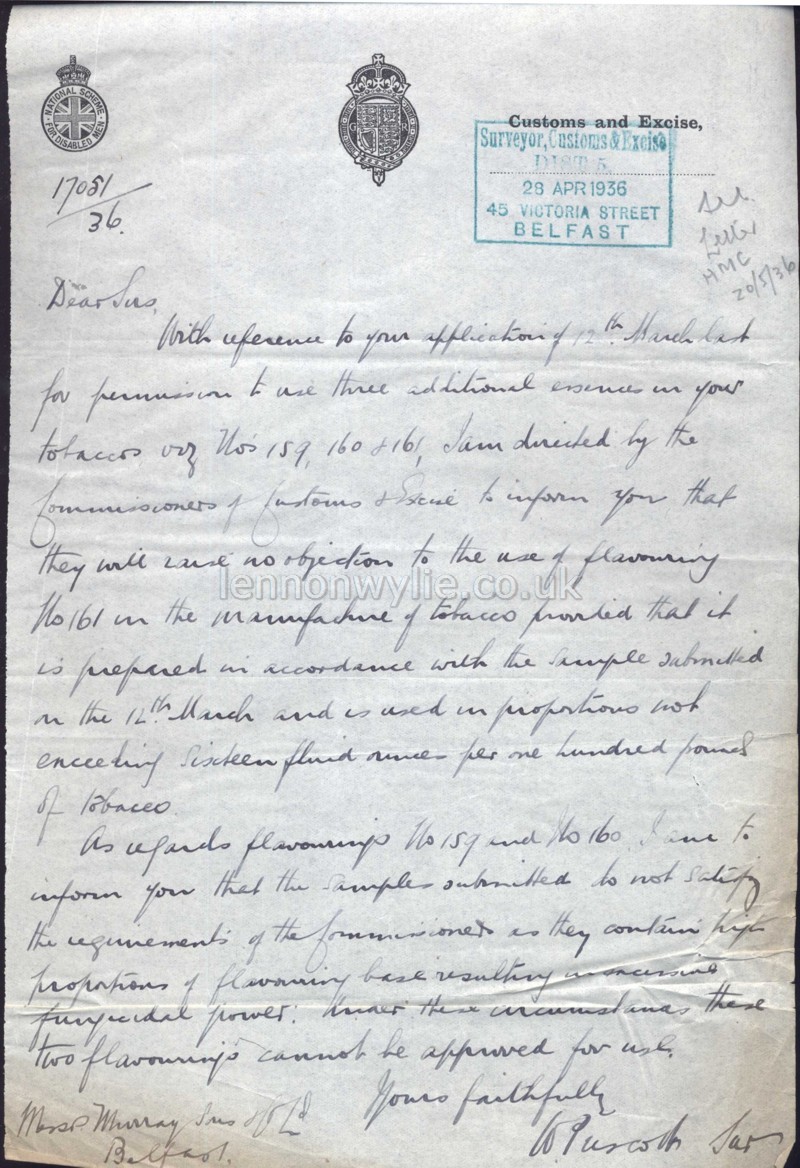 NATIONAL SCHEME
FOR DISABLED MEN
G R
Customs and Excise,
Surveyor, Customs & Excise
DIST 5
28 APR 1936
45 VICTORIA STREET
BELFAST
17051/36.
Letter
HMC
20/5/36
Dear Sirs,
With reference to your application of 12th March last
for permission to use three additional essences in your
tobaccos viz Nos 159, 160 & 161, I am directed by the
Commissioners of Customs & Excise to inform you that
they will raise no objection to the use of flavouring
lennonwylie.co.uk
No 161 in the manufacture of tobacco provided that it
is prepared in accordance with the sample submitted
on the 12th March and is used in proportions not
exceeding sixteen fluid ounces per one hundred pounds
of tobacco.
As regards flavourings No 159 and No 160 I am to
inform you that the samples submitted do not satisfy
the requirements of the Commissioners as they contain high
proportions of flavouring base resulting in excessive
fungicidal power. Under these circumstances these
two flavourings cannot be approved for use.
Yours faithfully
Messrs Murray Sons & Co Ld
Belfast.
W Puscott Sur